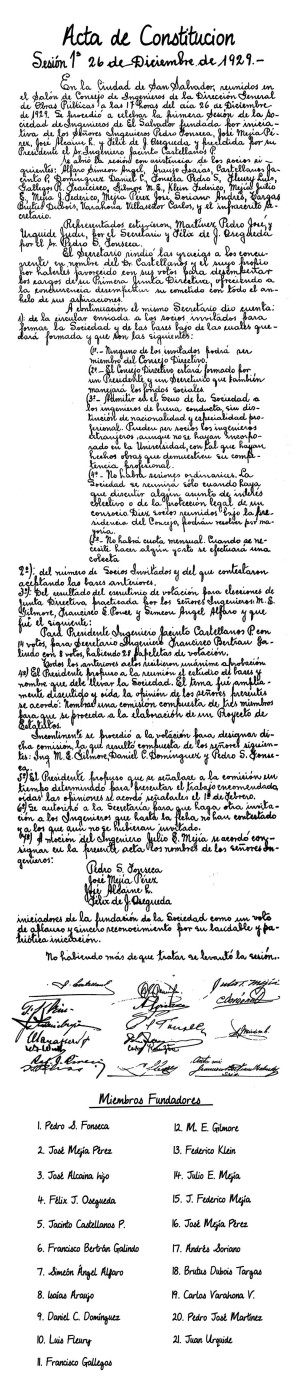 Acta de Constitucion
Sesión 1ª 26 de Diciembre de 1929.-
En la Ciudad de San Salvador, reunidos en
el Salón de Consejo de Ingenieros de la Dirección General
de Obras Públicas a las 17 horas del día 26 de Diciembre
de 1929. Se procedió a celebrar la primera sesión de la So-
ciedad de Ingenieros de El Salvador fundada por inicia-
tiva de los Señores Ingenieros Pedro Fonseca, José Mejía Pé-
rez, José Alcaine h. y Félix de J. Osegueda y presidida por su
Presidente el Sr Ingeniero Jacinto Castellanos P.
Se abrió la sesión con asistencia de los socios si-
guientes: Alfaro Simeón Angel, Araujo Isaias, Castellanos Ja-
cinto P. Dominguez Daniel C, Fonseca Pedro S, Fleury Luis,
Gallegos R. Francisco, Gilmore M. E., Klein Federico, Mejía Julio
E., Mejía J. Federico, Mejía Pérez José Soriano Andrés, Vargas
Brutus Dubois, Varahona Villaseñor Carlos, y el infrascrito Se-
cretario.
Representados estuvieron, Martínez Pedro José, y
Urquide Juan, por el Secretario y Félix de J. Osegueda
por el Dr. Pedro S. Fonseca.
El Secretario rindió las gracias a los concu-
rrentes en nombre del Dr Castellanos y el suyo propio
por haberles favorecido con sus votos para desempeñar
los cargos de su Primera Junta Directiva, ofreciendo a
la concurrencia desempeñar su cometido con todo el an-
helo de sus aspiraciones.
A continuación el mismo Secretario dio cuenta:
1): de la circular enviada a los socios invitados para
formar la Sociedad y de las bases bajo de las cuales que-
dará formada y que son las siguientes:
1º.- Ninguno de los invitados podrá ser
miembro del Consejo Directivo.
2º.- El Consejo Directivo estará formado por
un Presidente y un Secretario que también
manejará los fondos sociales.
3º.- Admitir en el Seno de la Sociedad a
los ingenieros de buena conducta, sin dis-
tinción de nacionalidad y especialidad pro-
fesional. Pueden ser socios los ingenieros
extranjeros aunque no se hayan incorpo-
rado en la Universidad, con tal que hayan
hechos obras que demuestren su compe-
tencia profesional.
4º.- No habrá sesiones ordinarias. La
Sociedad se reunirá sólo cuando haya
que discutir algún asunto de interés
colectivo o de la protección legal de un
consocio Diez socios reunidos bajo la pre-
sidencia del Consejo, podrán resolver por ma-
yoría.
5º.- No habrá cuota mensual. Cuando se ne-
cesite hacer algún gasto se efectuará una
colecta
2ª): del número de Socios Invitados y del que contestaron
aceptando las bases anteriores.
3ª) Del resultado del escrutinio de votación para elecciones de
Junta Directiva practicada por los señores Ingenieros M. E.
Gilmore, Francisco E. Ponce y Simeon Angel Alfaro y que
fué el siguiente:
Para Presidente Ingeniero Jacinto Castellanos P. con
14 votos, para Secretario Ingeniero Francisco Bertrán Ga-
lindo con 8 votos, habiendo 21 papeletas de votación.
Todos los anteriores actos recibieron unánime aprobación
4ª) El Presidente propuso a la reunión el estudio de bases y
nombre que debe llevar la Sociedad. El tema fué amplia-
mente discutido y oída la opinión de los señores presentes
se acordó: Nombrar una comisión compuesta de tres miembros
para que se proceda a la elaboración de un Proyecto de
Estatutos.
Incontinente se procedió a la votación para designar di-
cha comisión, la que resultó compuesta de los señores siguien-
tes: Ing. M. E. Gilmore, Daniel C. Dominguez y Pedro S. Fonse-
ca.
5ª) El Presidente propuso que se señalase a la comisión un
tiempo determinado para presentar el trabajo encomendado
oídas las opiniones se acordó señalarles el 1º de Febrero.
6ª) Se autorizó a la Secretaría para que haga otra invita-
ción a los Ingenieros que hasta la fecha no han contestado
y a los que aún no se hubieran invitado.
7ª) A moción del Ingeniero Julio E. Mejía se acordó con-
signar en la presente acta los nombres de los señores In-
genieros:
Pedro S. Fonseca
José Mejía Pérez
José Alcaine h.
Félix de J. Osegueda
iniciadores de la fundación de la Sociedad como un voto
de aplauso y sincero reconocimiento por su laudable y pa-
triótica iniciación.
No habiendo más de que tratar se levantó la sesión..
Miembros Fundadores
1. Pedro S. Fonseca
2. José Mejía Pérez
3. José Alcaina hijo
4. Félix J. Osegueda
5. Jacinto Castellanos P.
6. Francisco Bertrán Galindo
7. Simeón Ángel Alfaro
8. Isaías Araujo
9. Daniel C. Domínguez
10. Luis Fleury
11. Francisco Gallegos
12. M. E. Gilmore
13. Federico Klein
14. Julio E. Mejía
15. J. Federico Mejía
16. José Mejía Pérez
17. Andrés Soriano
18. Brutus Dubois Targas
19. Carlos Varahona V.
20. Pedro José Martínez
21. Juan Urquide